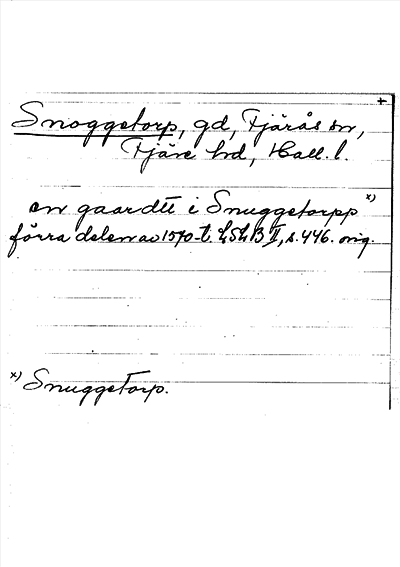 +
Snoggetorp, gd, Fjärås sn,
Fjäre hd, Hall. l.
en gaardtt i Snuggetorpp x)
förra delen av 1570-t. LSLB II, s. 446. orig.
x) Snuggetorp.